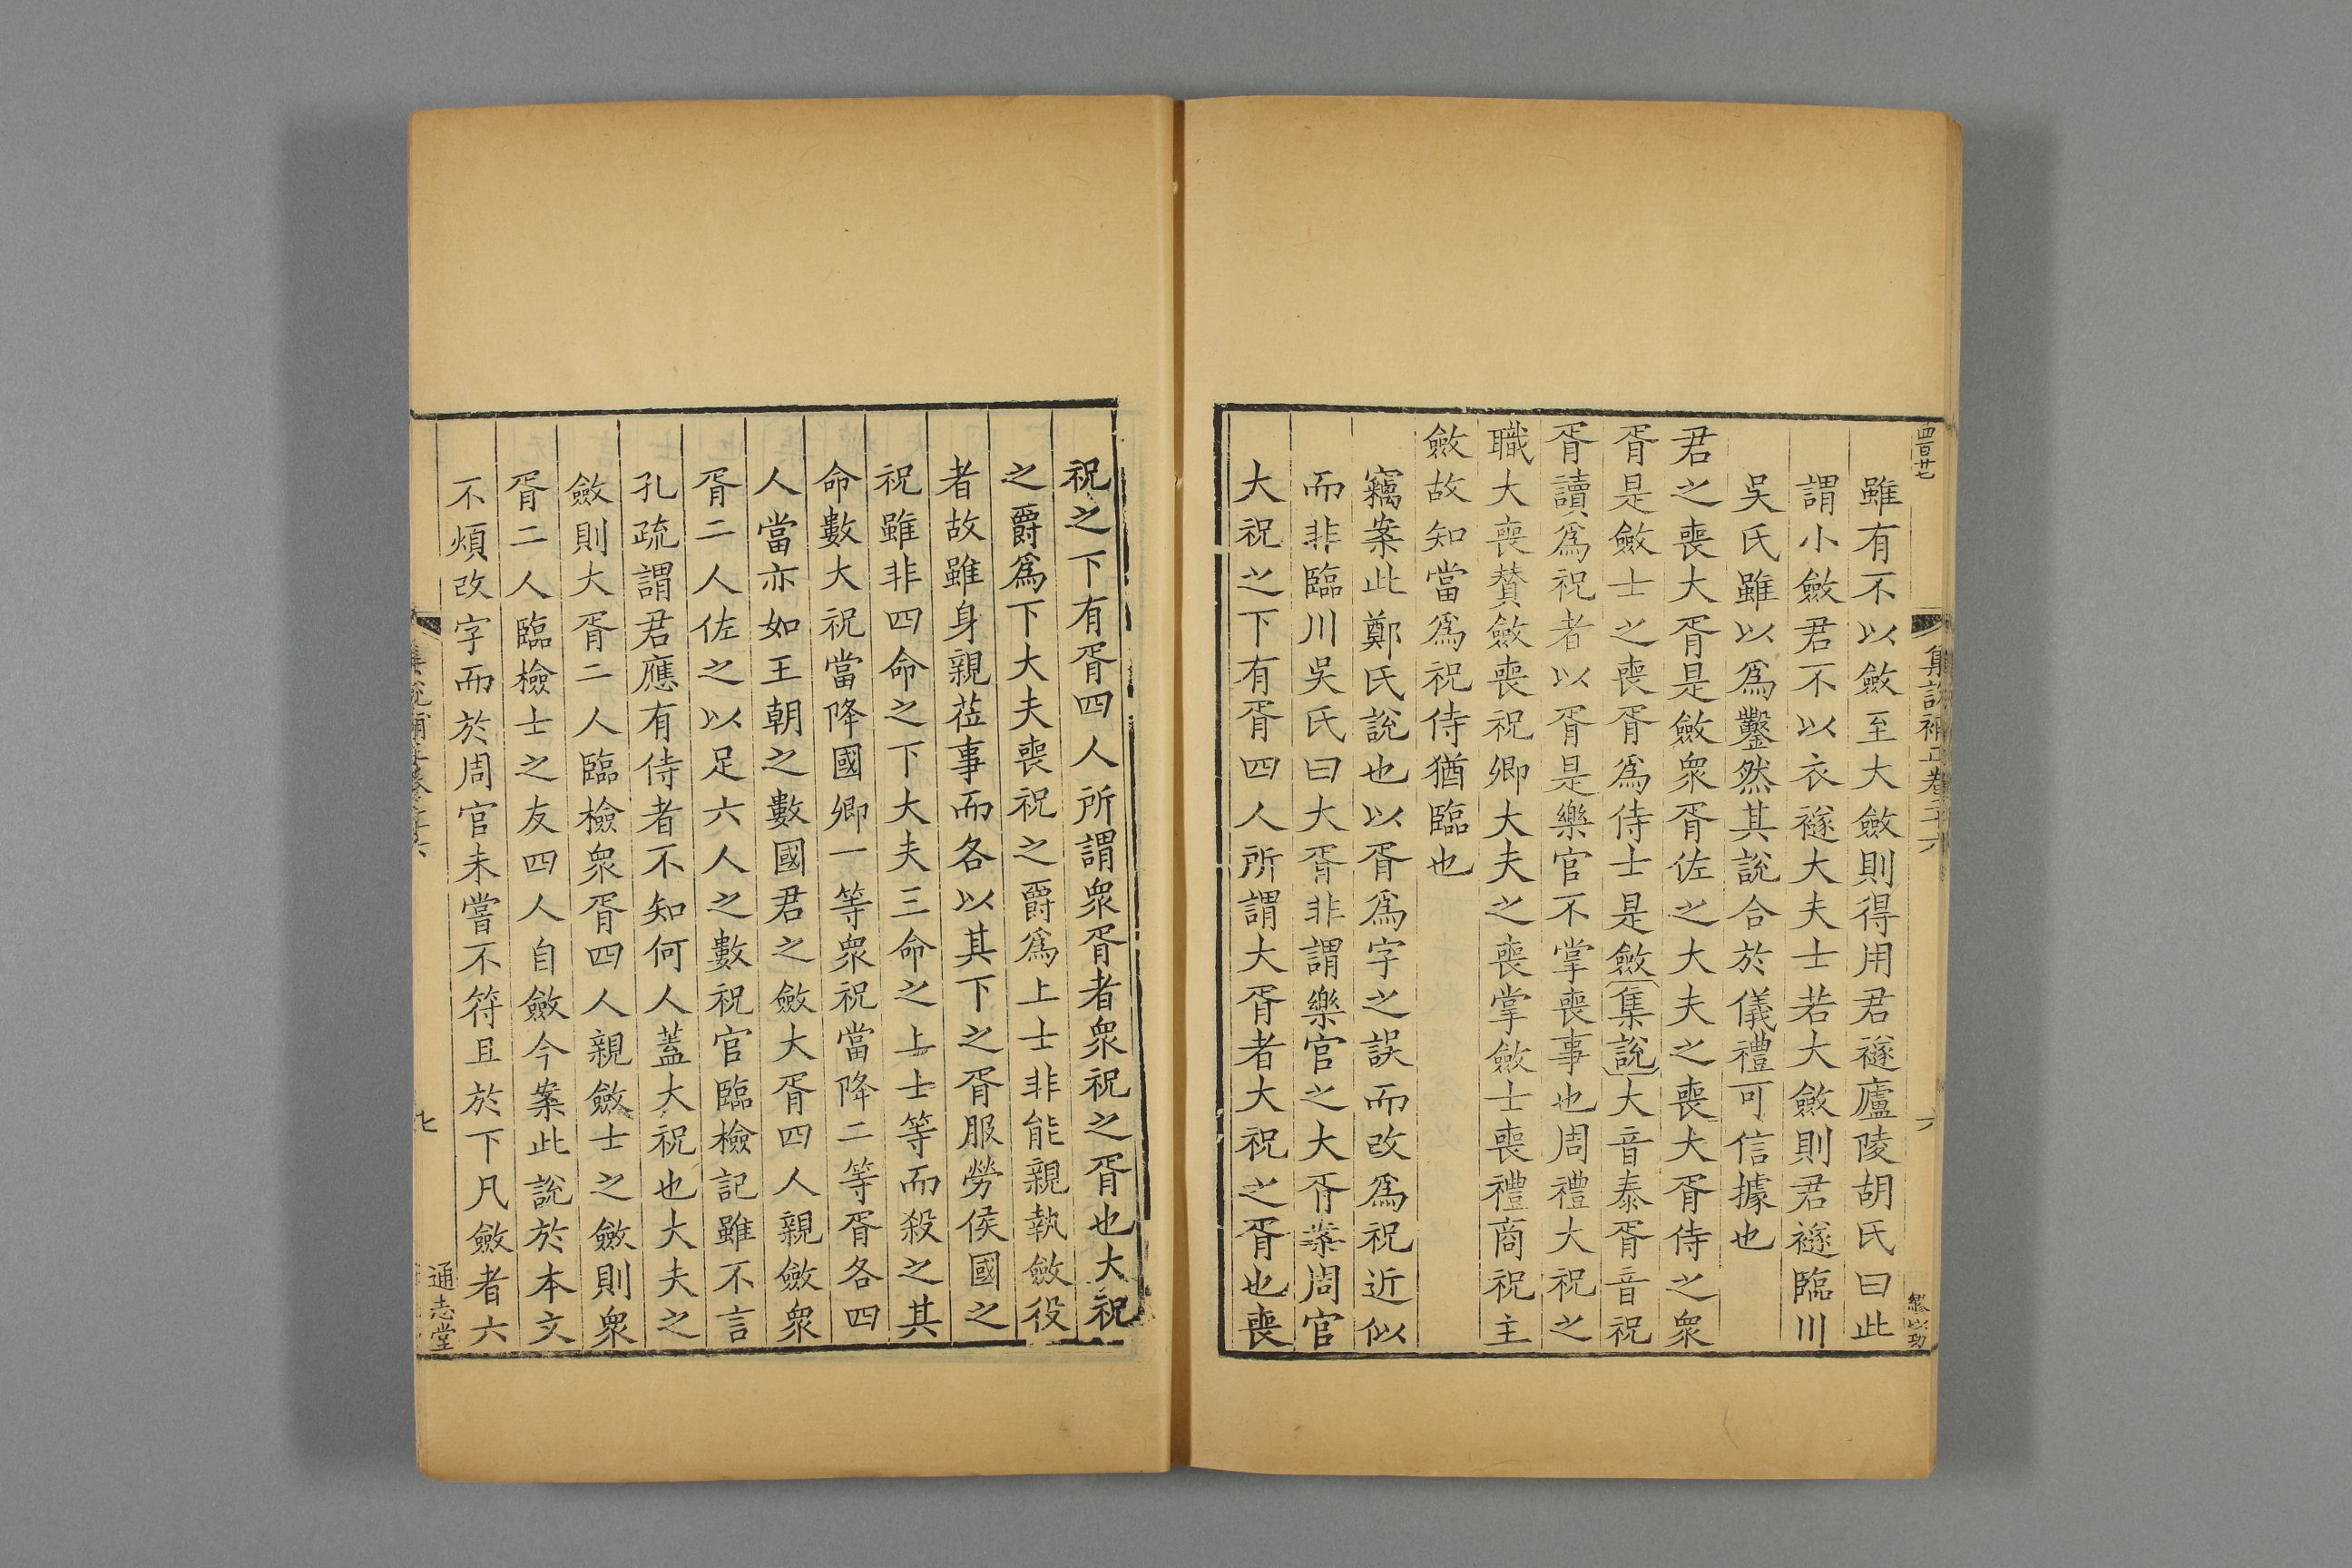 四百廿七
集說補正卷二十六
六
雖有不以斂至大斂則得用君襚廬陵胡氏曰此
謂小斂君不以衣襚大夫士若大斂則君襚臨川
吳氏雖以爲鑿然其說合於儀禮可信據也
君之喪大胥是斂衆胥佐之大夫之喪大胥侍之衆
胥是斂士之喪胥爲侍士是斂集說大音泰胥音祝
胥讀爲祝者以胥是樂官不掌喪事也周禮大祝之
職大喪贊斂喪祝卿大夫之喪掌斂士喪禮商祝主
斂故知當爲祝侍猶臨也
竊案此鄭氏說也以胥爲字之誤而改爲祝近似
而非臨川吳氏曰大胥非謂樂官之大胥案周官
大祝之下有胥四人所謂大胥者大祝之胥也喪
祝之下有胥四人所謂衆胥者衆祝之胥也大祝
之爵爲下大夫喪祝之爵爲上士非能親執斂役
者故雖身親莅事而各以其下之胥服勞侯國之
祝雖非四命之下大夫三命之上士等而殺之其
命數大祝當降國卿一等衆祝當降二等胥各四
人當亦如王朝之數國君之斂大胥四人親斂衆
胥二人佐之以足六人之數祝官臨檢記雖不言
孔疏謂君應有侍者不知何人蓋大祝也大夫之
斂則大胥二人臨檢衆胥四人親斂士之斂則衆
胥二人臨檢士之友四人自斂今案此說於本文
不煩改字而於周官未嘗不符且於下凡斂者六
七
通志堂